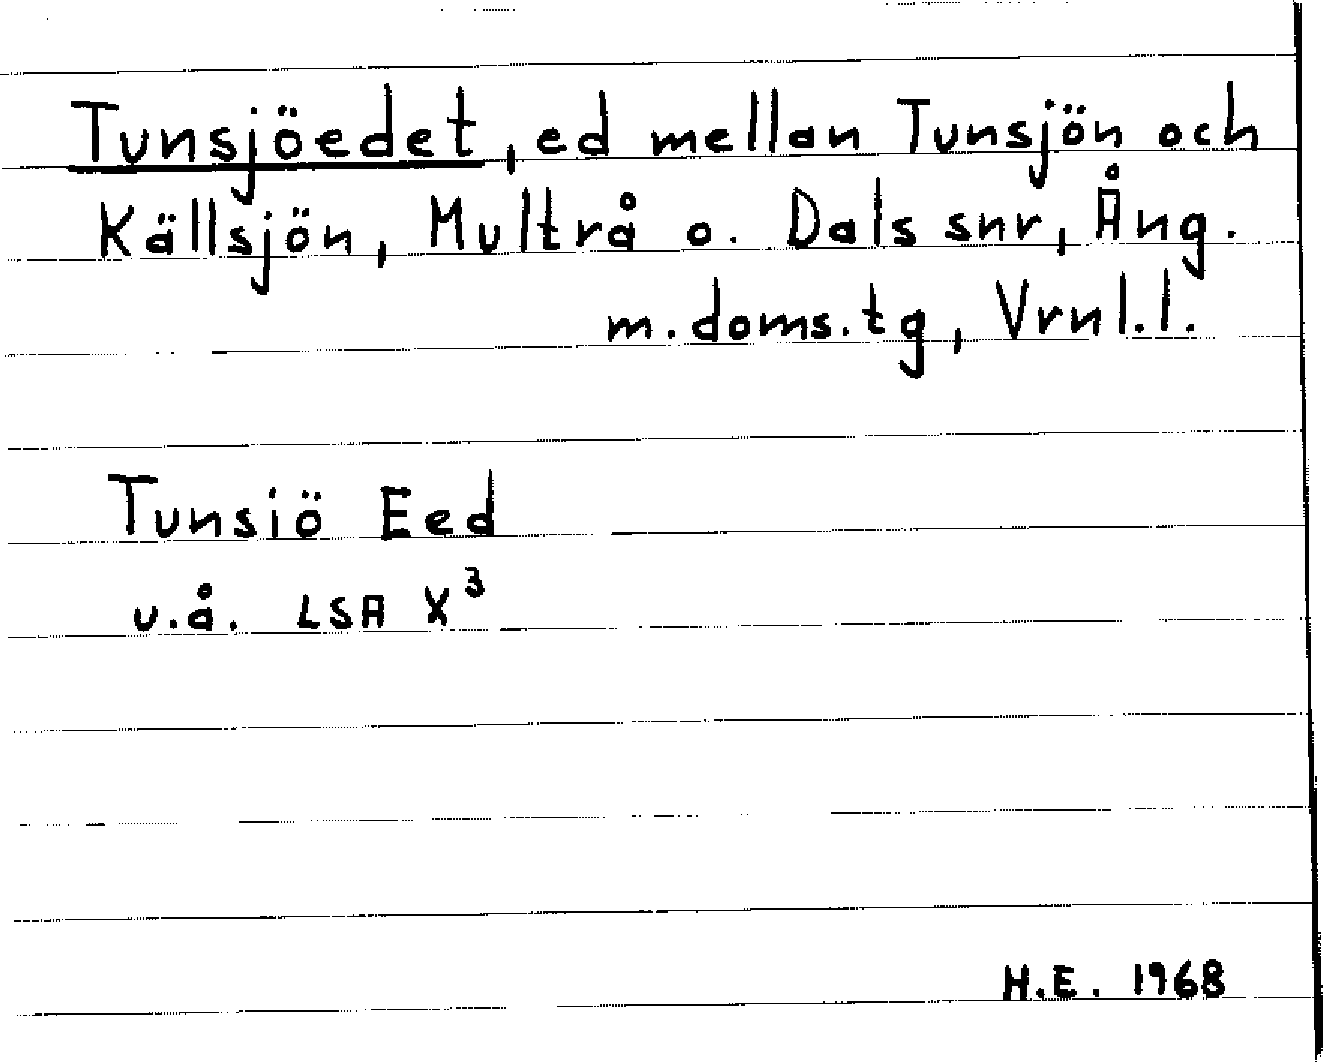 Tunsjöedet, ed mellan Tunsjön och
Källsjön, Multrå o. Dals snr, Ång.
m. doms.tg, Vrnl.l.
Tunsiö Eed
u.å. LSA X³
H.E. 1968